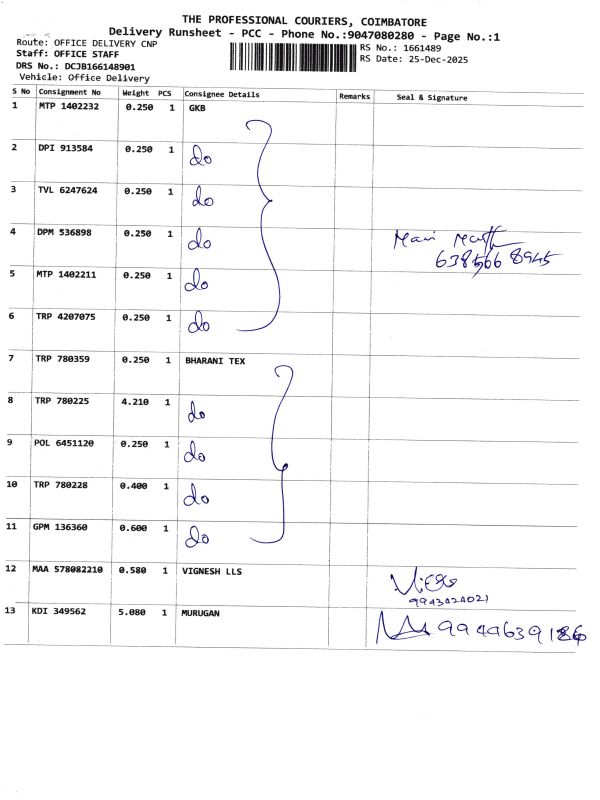 THE PROFESSIONAL COURIERS, COIMBATORE
Delivery Runsheet - PCC - Phone No.:9047080280 - Page No.:1
Route: OFFICE DELIVERY CNP
Staff: OFFICE STAFF
DRS No.: DCJB166148901
Vehicle: Office Delivery
RS No.: 1661489
RS Date: 25-Dec-2025
S No Consignment No Weight PCS Consignee Details Remarks Seal & Signature
1 MTP 1402232 0.250 1 GKB
2 DPI 913584 0.250 1 do
3 TVL 6247624 0.250 1 do
4 DPM 536898 0.250 1 do Mari
6385668945
5 MTP 1402211 0.250 1 do
6 TRP 4207075 0.250 1 do
7 TRP 780359 0.250 1 BHARANI TEX
8 TRP 780225 4.210 1 do
9 POL 6451120 0.250 1 do
10 TRP 780228 0.400 1 do
11 GPM 136360 0.600 1 do
12 MAA 578082210 0.580 1 VIGNESH LLS
9943424021
13 KDI 349562 5.080 1 MURUGAN 9944639186